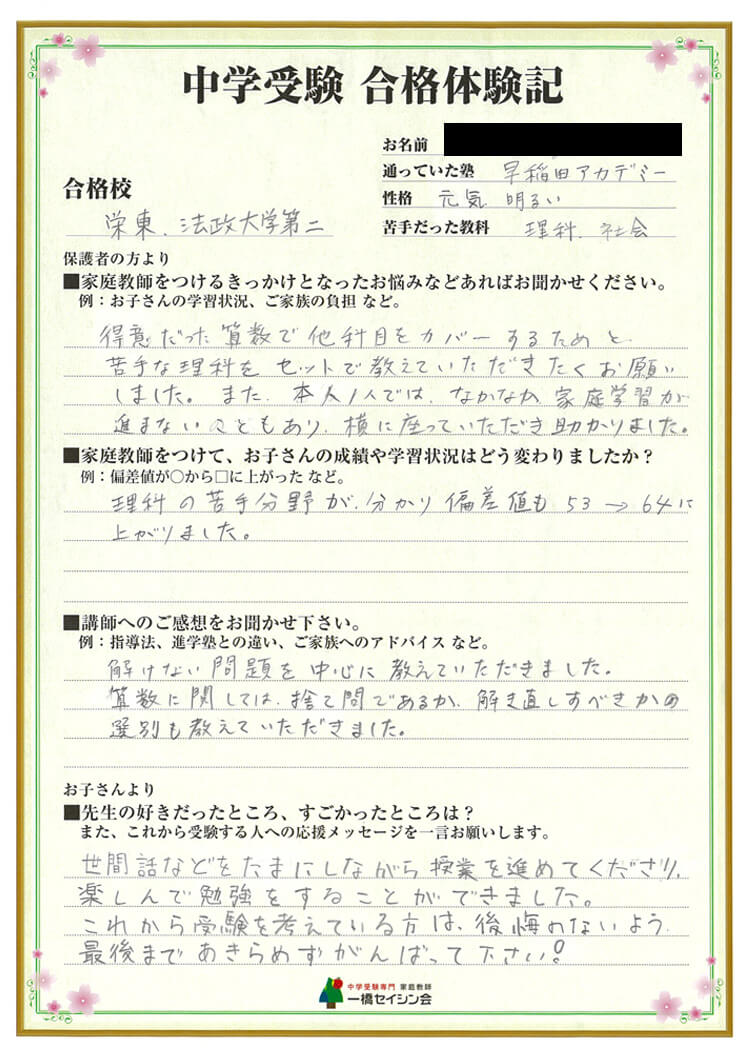 中学受験 合格体験記
お名前
通っていた塾 早稲田アカデミー
合格校
性格 元気 明るい
栄東、法政大学第二
苦手だった教科 理科、社会
保護者の方より
■家庭教師をつけるきっかけとなったお悩みなどあればお聞かせください。
例：お子さんの学習状況、ご家族の負担 など。
得意だった算数で他科目をカバーするためと
苦手な理科をセットで教えていただきたくお願い
しました。また、本人1人では、なかなか家庭学習が
進まないこともあり、横に座っていただき助かりました。
■家庭教師をつけて、お子さんの成績や学習状況はどう変わりましたか？
例：偏差値が○から□に上がった など。
理科の苦手分野が、分かり偏差値も 53→64に
上がりました。
■講師へのご感想をお聞かせ下さい。
例：指導法、進学塾との違い、ご家族へのアドバイス など。
解けない問題を中心に教えていただきました。
算数に関しては、捨て問であるか、解き直しすべきかの
選別も教えていただきました。
お子さんより
■先生の好きだったところ、すごかったところは？
また、これから受験する人への応援メッセージを一言お願いします。
世間話などをたまにしながら授業を進めてくださり、
楽しんで勉強をすることができました。
これから受験を考えている方は、後悔のないよう、
最後まであきらめずがんばって下さい！
中学受験専門 家庭教師
一橋セイシン会